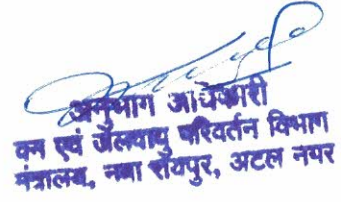 अनुभाग अधिकारी
वन एवं जलवायु परिवर्तन विभाग
मंत्रालय, नवा रायपुर, अटल नगर